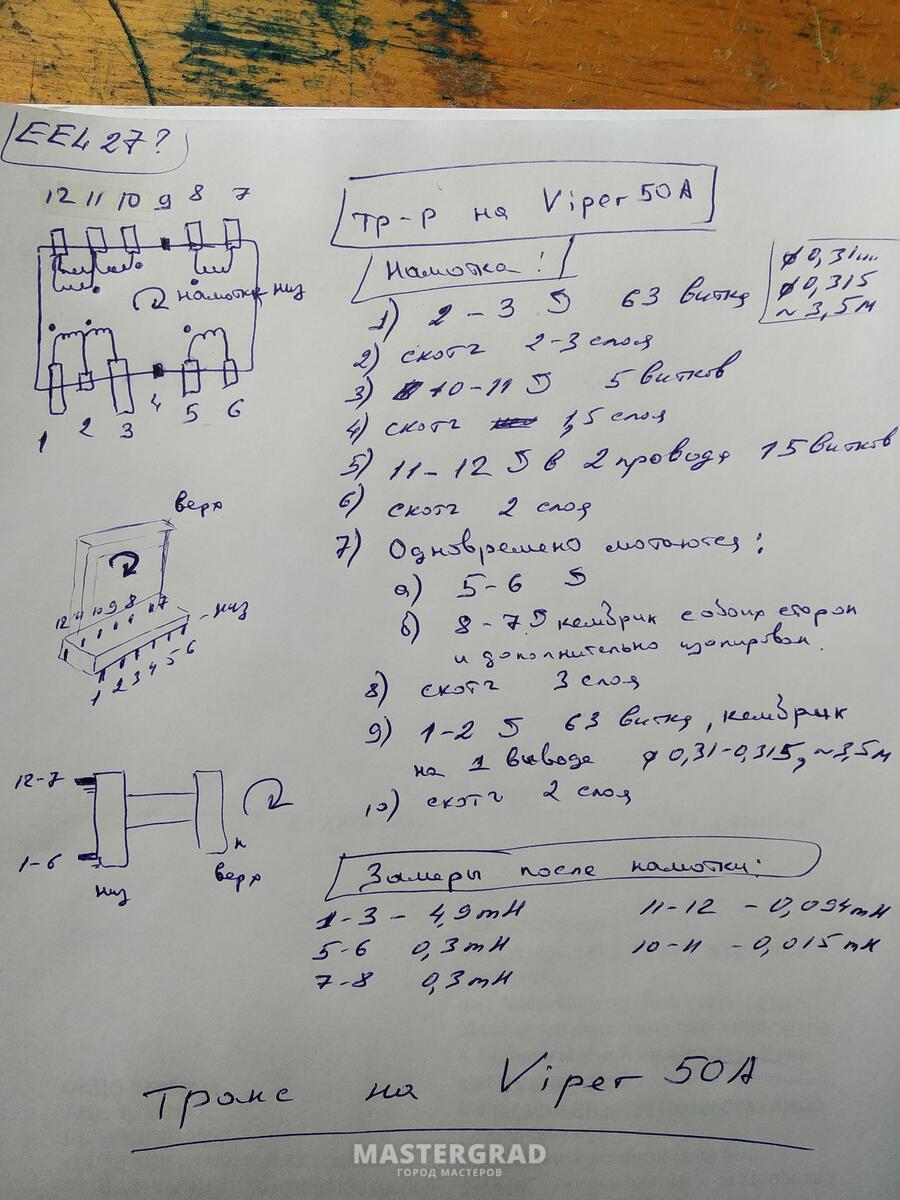 EEL 27?
12 11 10 9 8 7
намотка низ
1 2 3 4 5 6
верх
12 11 10 9 8 7
низ
1 2 3 4 5 6
12-7
1-6
низ
верх
тр-р на Viper 50A
Намотка:
ø 0,31
ø 0,315
~ 3,5 м
1) 2-3 63 витка
2) скотч 2-3 слоя
3) 10-11 5 витков
4) скотч 1,5 слоя
5) 11-12 в 2 провода 15 витков
6) скотч 2 слоя
7) Одновремено мотаются:
а) 5-6
б) 8-7 кембрик с обоих сторон
и дополнительно изолирован.
8) скотч 3 слоя
9) 1-2 63 витка, кембрик
на 1 выводе ø 0,31-0,315, ~3,5м
10) скотч 2 слоя
Замеры после намотки:
1-3 - 4,9mH 11-12 - 0,094mH
5-6 0,3mH 10-11 - 0,015mH
7-8 0,3mH
Транс на Viper 50A
MASTERGRAD
ГОРОД МАСТЕРОВ